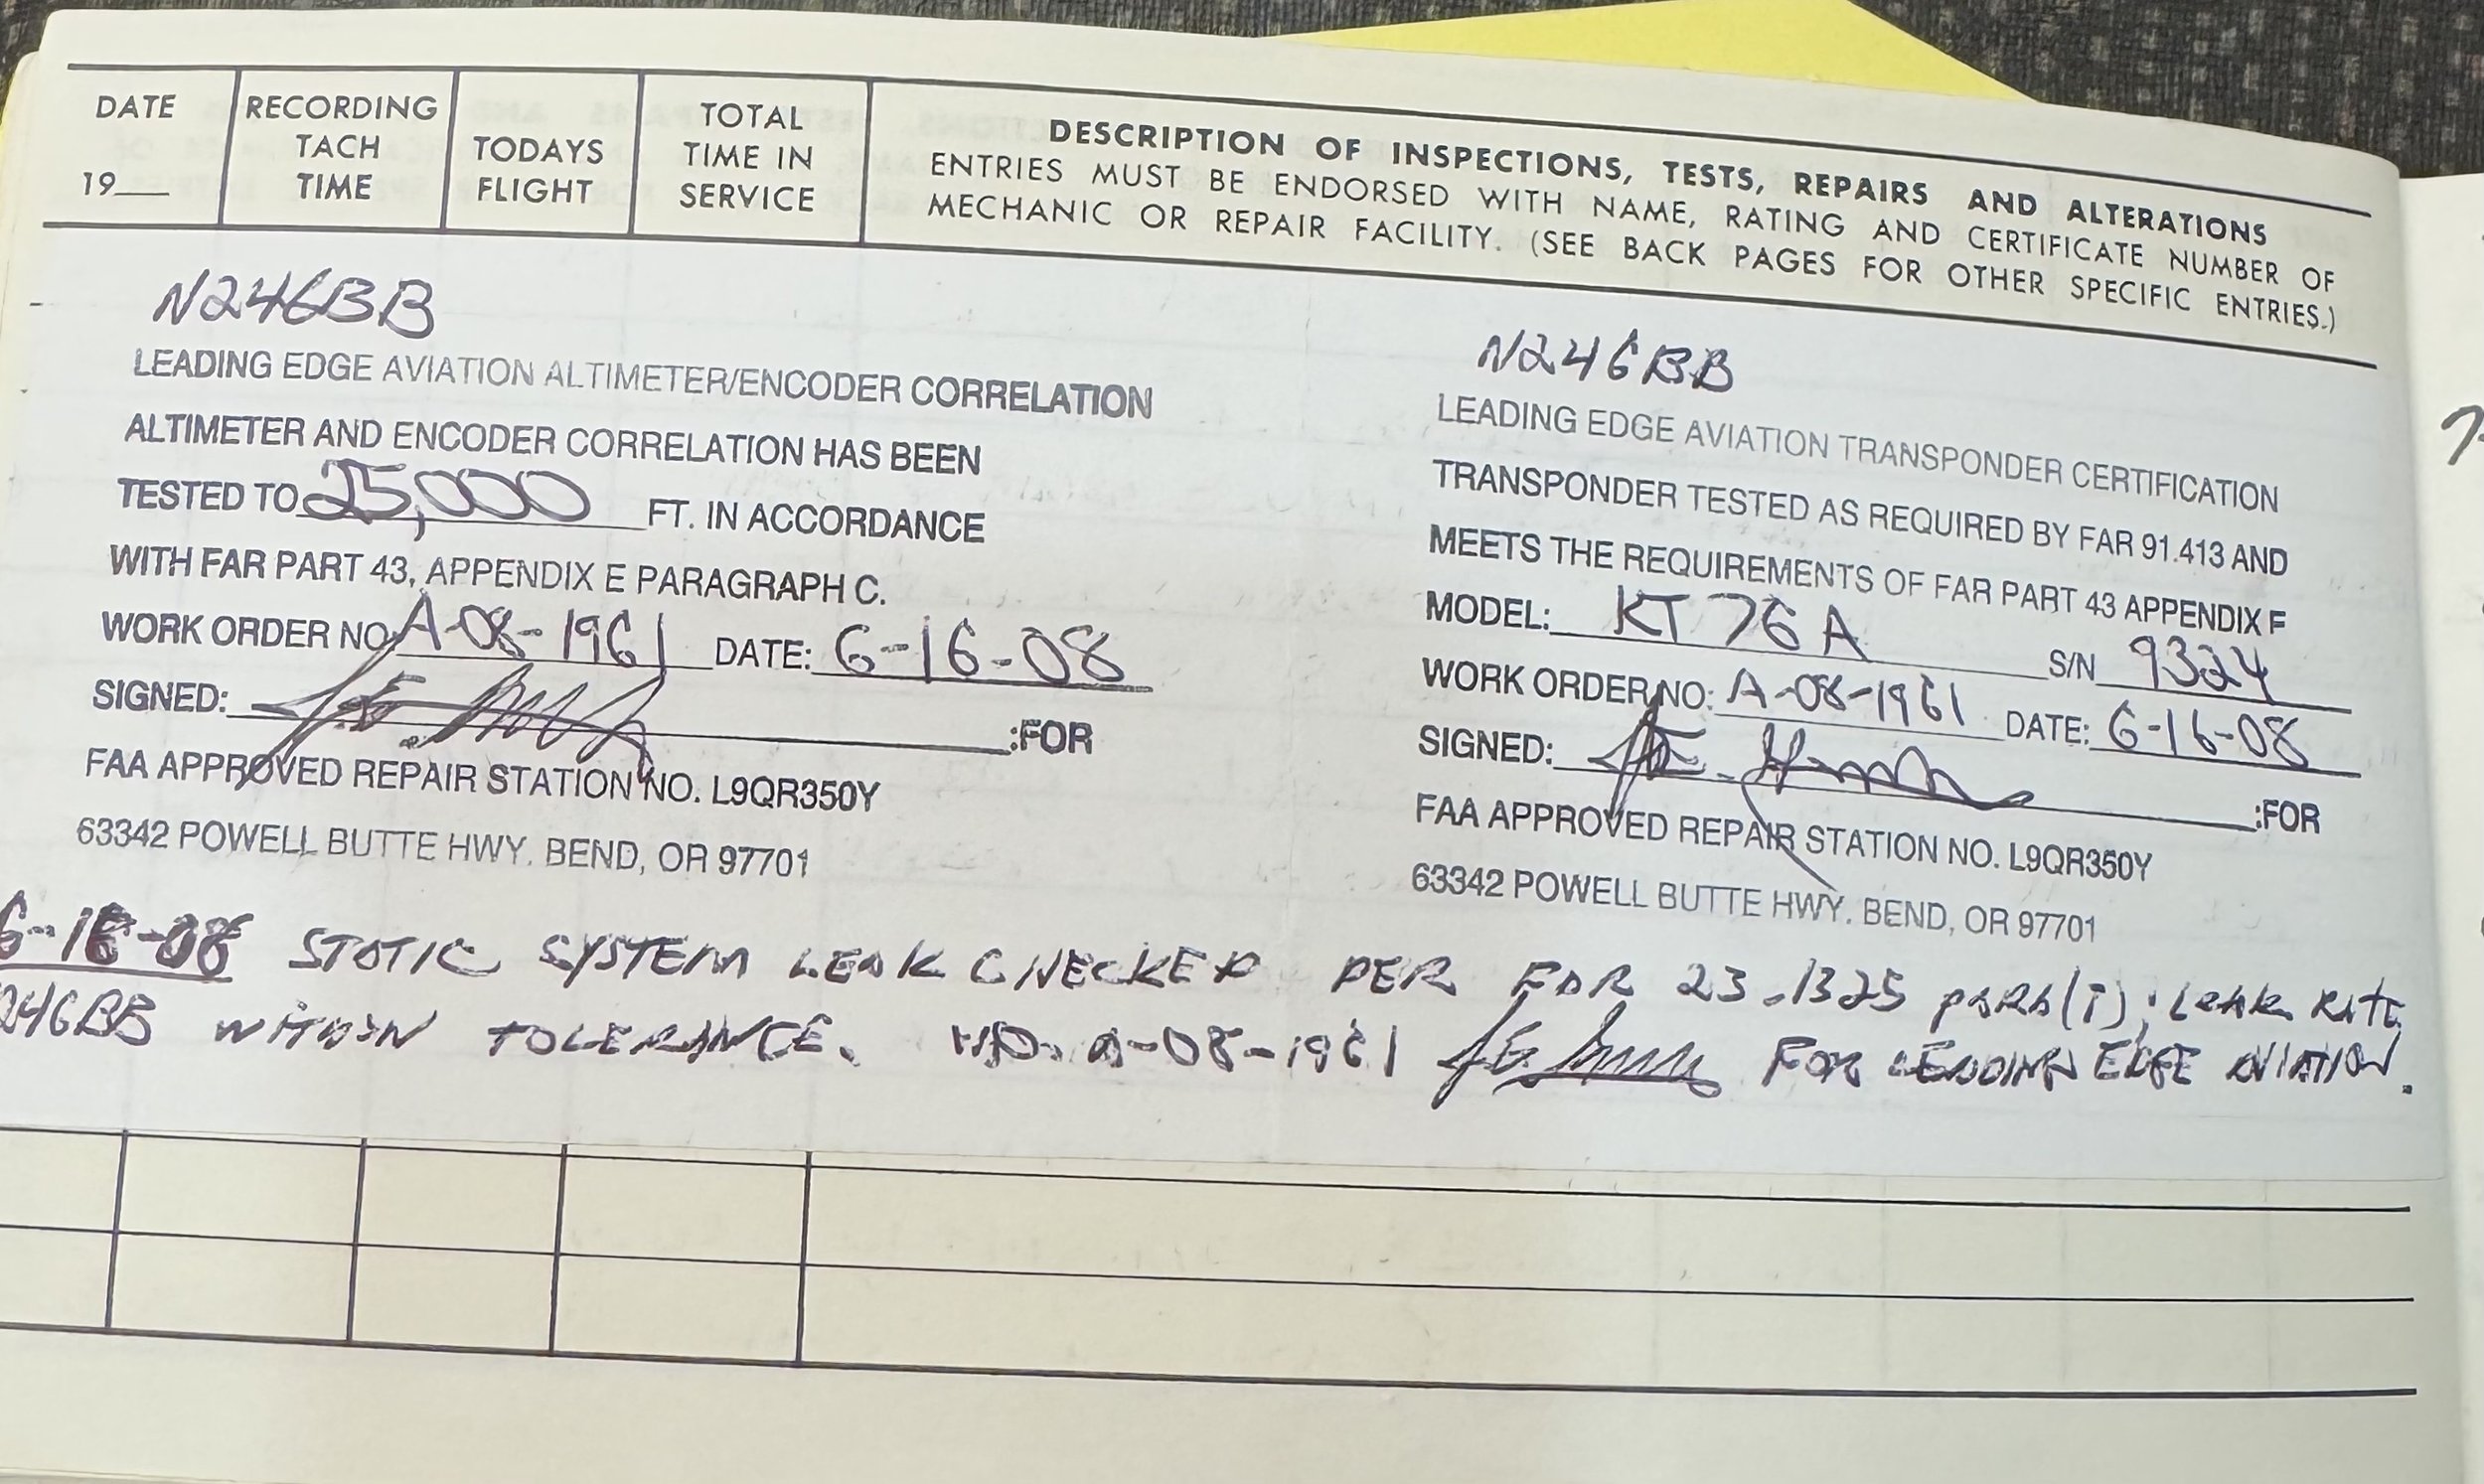 DATE
19__
RECORDING
TACH
TIME
TODAYS
FLIGHT
TOTAL
TIME IN
SERVICE
DESCRIPTION OF INSPECTIONS, TESTS, REPAIRS AND ALTERATIONS
ENTRIES MUST BE ENDORSED WITH NAME, RATING AND CERTIFICATE NUMBER OF
MECHANIC OR REPAIR FACILITY. (SEE BACK PAGES FOR OTHER SPECIFIC ENTRIES.)
N246BB
LEADING EDGE AVIATION ALTIMETER/ENCODER CORRELATION
ALTIMETER AND ENCODER CORRELATION HAS BEEN
TESTED TO 25,000 FT. IN ACCORDANCE
WITH FAR PART 43, APPENDIX E PARAGRAPH C.
WORK ORDER NO. A-08-1961 DATE: 6-16-08
SIGNED: :FOR
FAA APPROVED REPAIR STATION NO. L9QR350Y
63342 POWELL BUTTE HWY. BEND, OR 97701
N246BB
LEADING EDGE AVIATION TRANSPONDER CERTIFICATION
TRANSPONDER TESTED AS REQUIRED BY FAR 91.413 AND
MEETS THE REQUIREMENTS OF FAR PART 43 APPENDIX F
MODEL: KT 76 A S/N 9324
WORK ORDER NO: A-08-1961 DATE: 6-16-08
SIGNED: :FOR
FAA APPROVED REPAIR STATION NO. L9QR350Y
63342 POWELL BUTTE HWY. BEND, OR 97701
6-16-08 STATIC SYSTEM LEAK CHECKED PER FAR 23.1325 PARA(i); LEAK RATE
246BB WITHIN TOLERANCE. W.O. A-08-1961 FOR LEADING EDGE AVIATION.